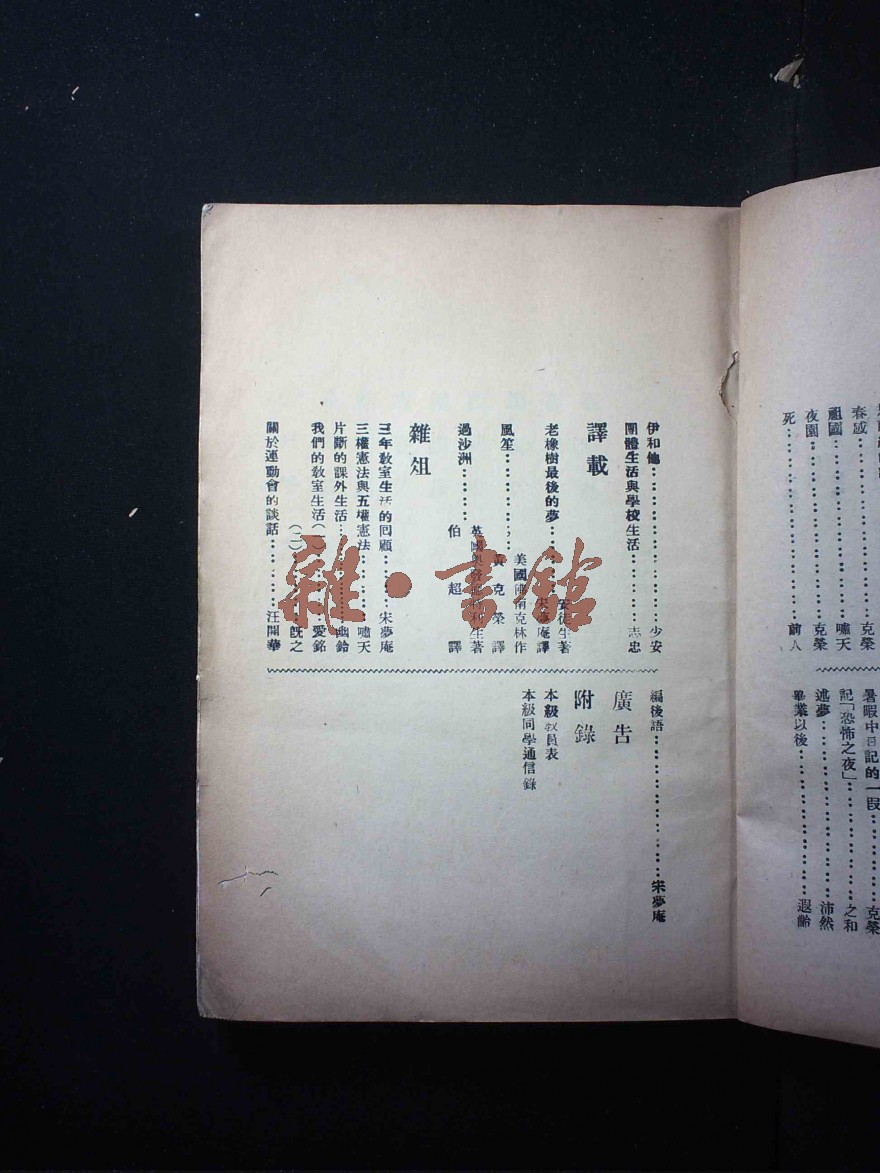 春感…………克榮
祖國…………嘯天
夜園…………克榮
死…………前人
暑暇中日記的一段…………克榮
記「恐怖之夜」…………之和
述夢…………沛然
畢業以後…………遐齡
伊和他…………少安
團體生活與學校生活…………志忠
譯載
老橡樹最後的夢…………安徒生著
宋夢庵譯
風笙…………美國佛蘭克林作
黃克榮譯
過沙洲…………
伯超譯
雜俎
三年教室生活的回顧…………宋夢庵
三權憲法與五權憲法…………嘯天
片斷的課外生活…………幽鈴
我們的教室生活(一)…………愛銘
(二)…………旣之
關於運動會的談話…………汪開華
編後語…………宋夢庵
廣告
附錄
本級教員表
本級同學通信錄
雜·書館